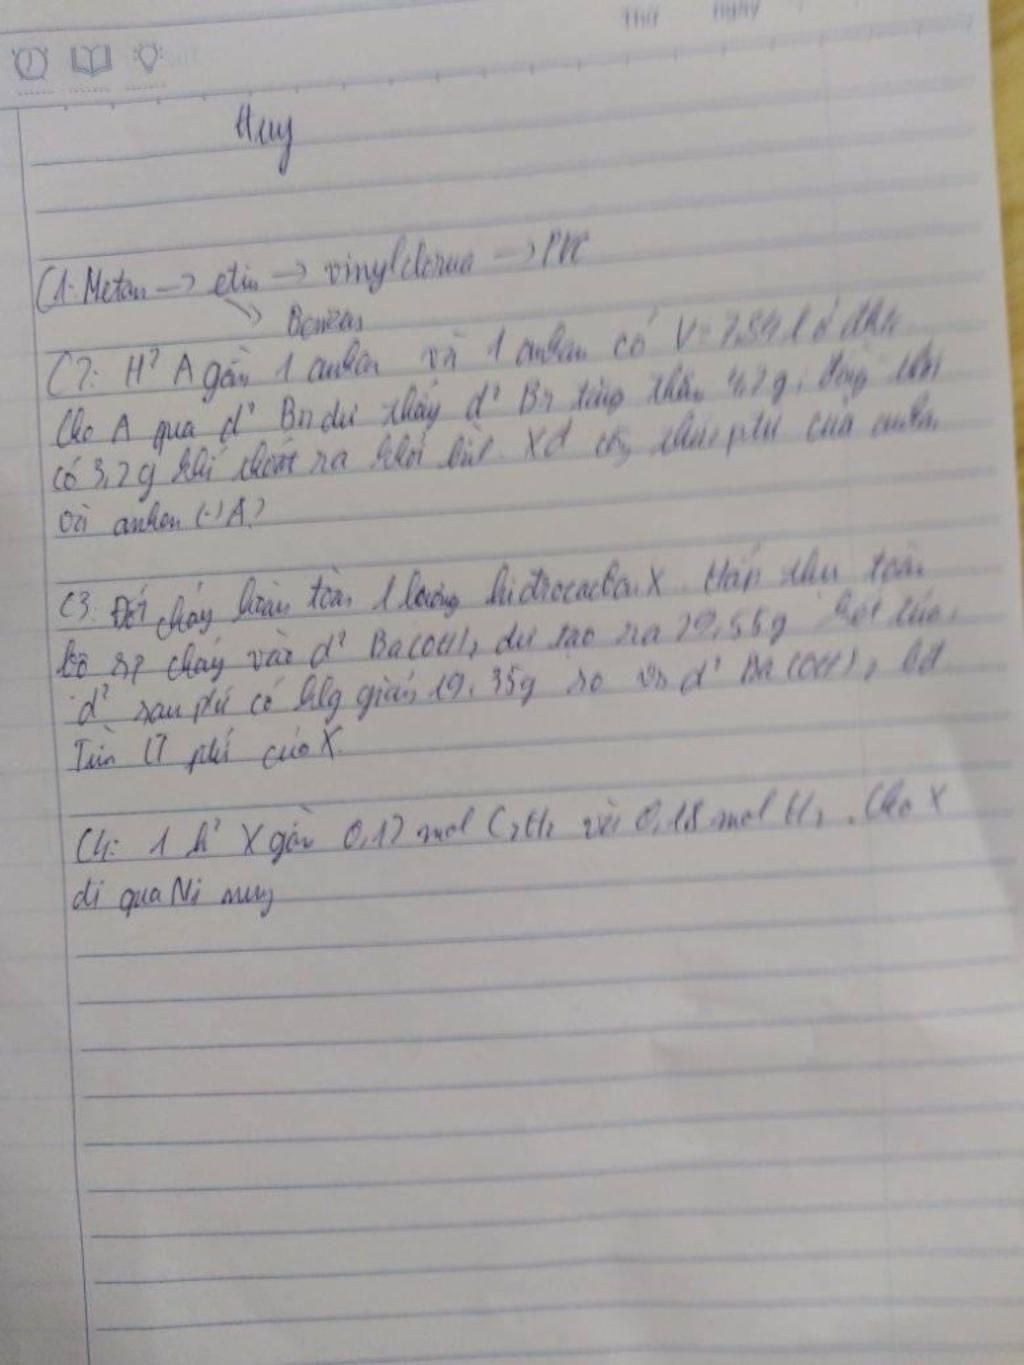 Thứ Ngày
Huy
C1: Metan → etin → vinylclorua → PVC
↘ Benzen
C2: H² A gồm 1 ankan và 1 anken có V = 7,84 l ở đktc
Cho A qua d² Br2 dư thấy d² Br2 tăng thêm 4,2g, đồng thời
có 3,2g khí thoát ra khỏi bình. Xđ công thức ptử của ankan
và anken (-) A?
C3. Đốt cháy hoàn toàn 1 lượng hiđrocacbon X. Hấp thụ toàn
bộ sp cháy vào d² Ba(OH)2 dư tạo ra 29,55g kết tủa,
d² sau pứ có klg giảm 19,35g so với d² Ba(OH)2 bđ
Tìm CT ptử của X.
C4: 1 h² X gồm 0,12 mol C2H2 và 0,18 mol H2. Cho X
đi qua Ni nung